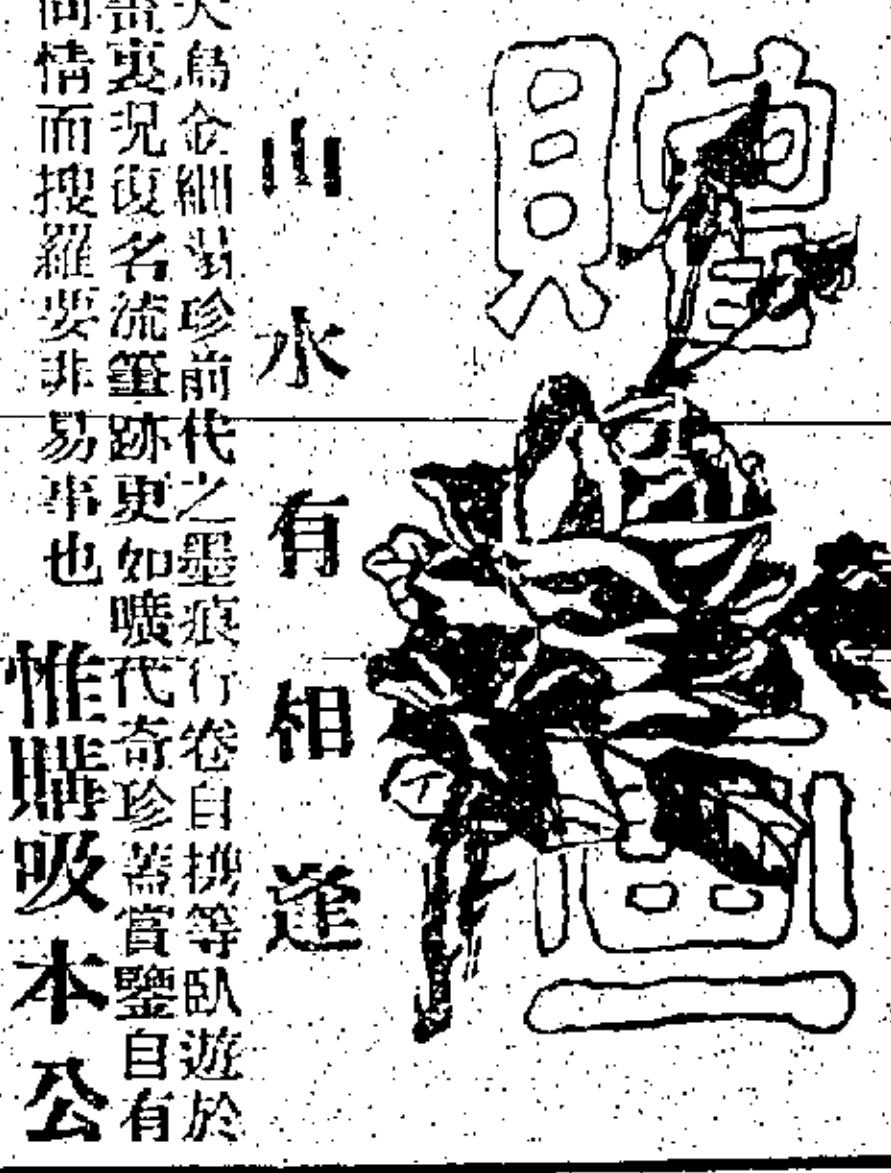 贈畫
山水有相逢
烏金細珍前代之墨痕行卷自携等臥遊於
裏況復名流筆跡更如曠代奇珍蓋賞鑒自有
同情而搜羅要非易事也 惟購吸本公